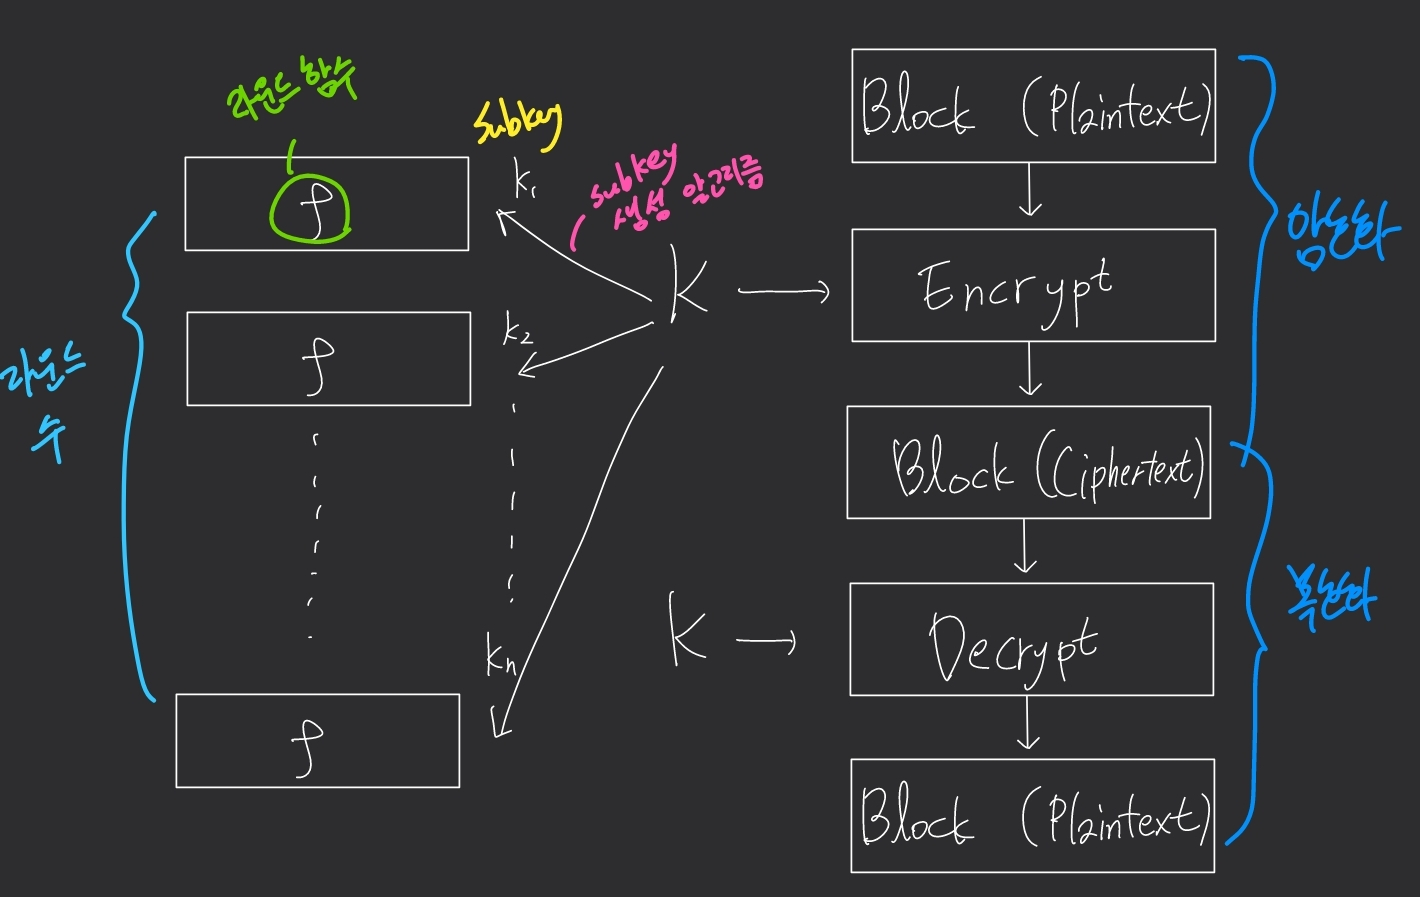 라운드 함수
Subkey
f
k₁
subkey
생성 알고리즘
K
k₂
f
라운드
수
kₙ
f
Block (Plaintext)
Encrypt
Block (Ciphertext)
K
Decrypt
Block (Plaintext)
암호화
복호화